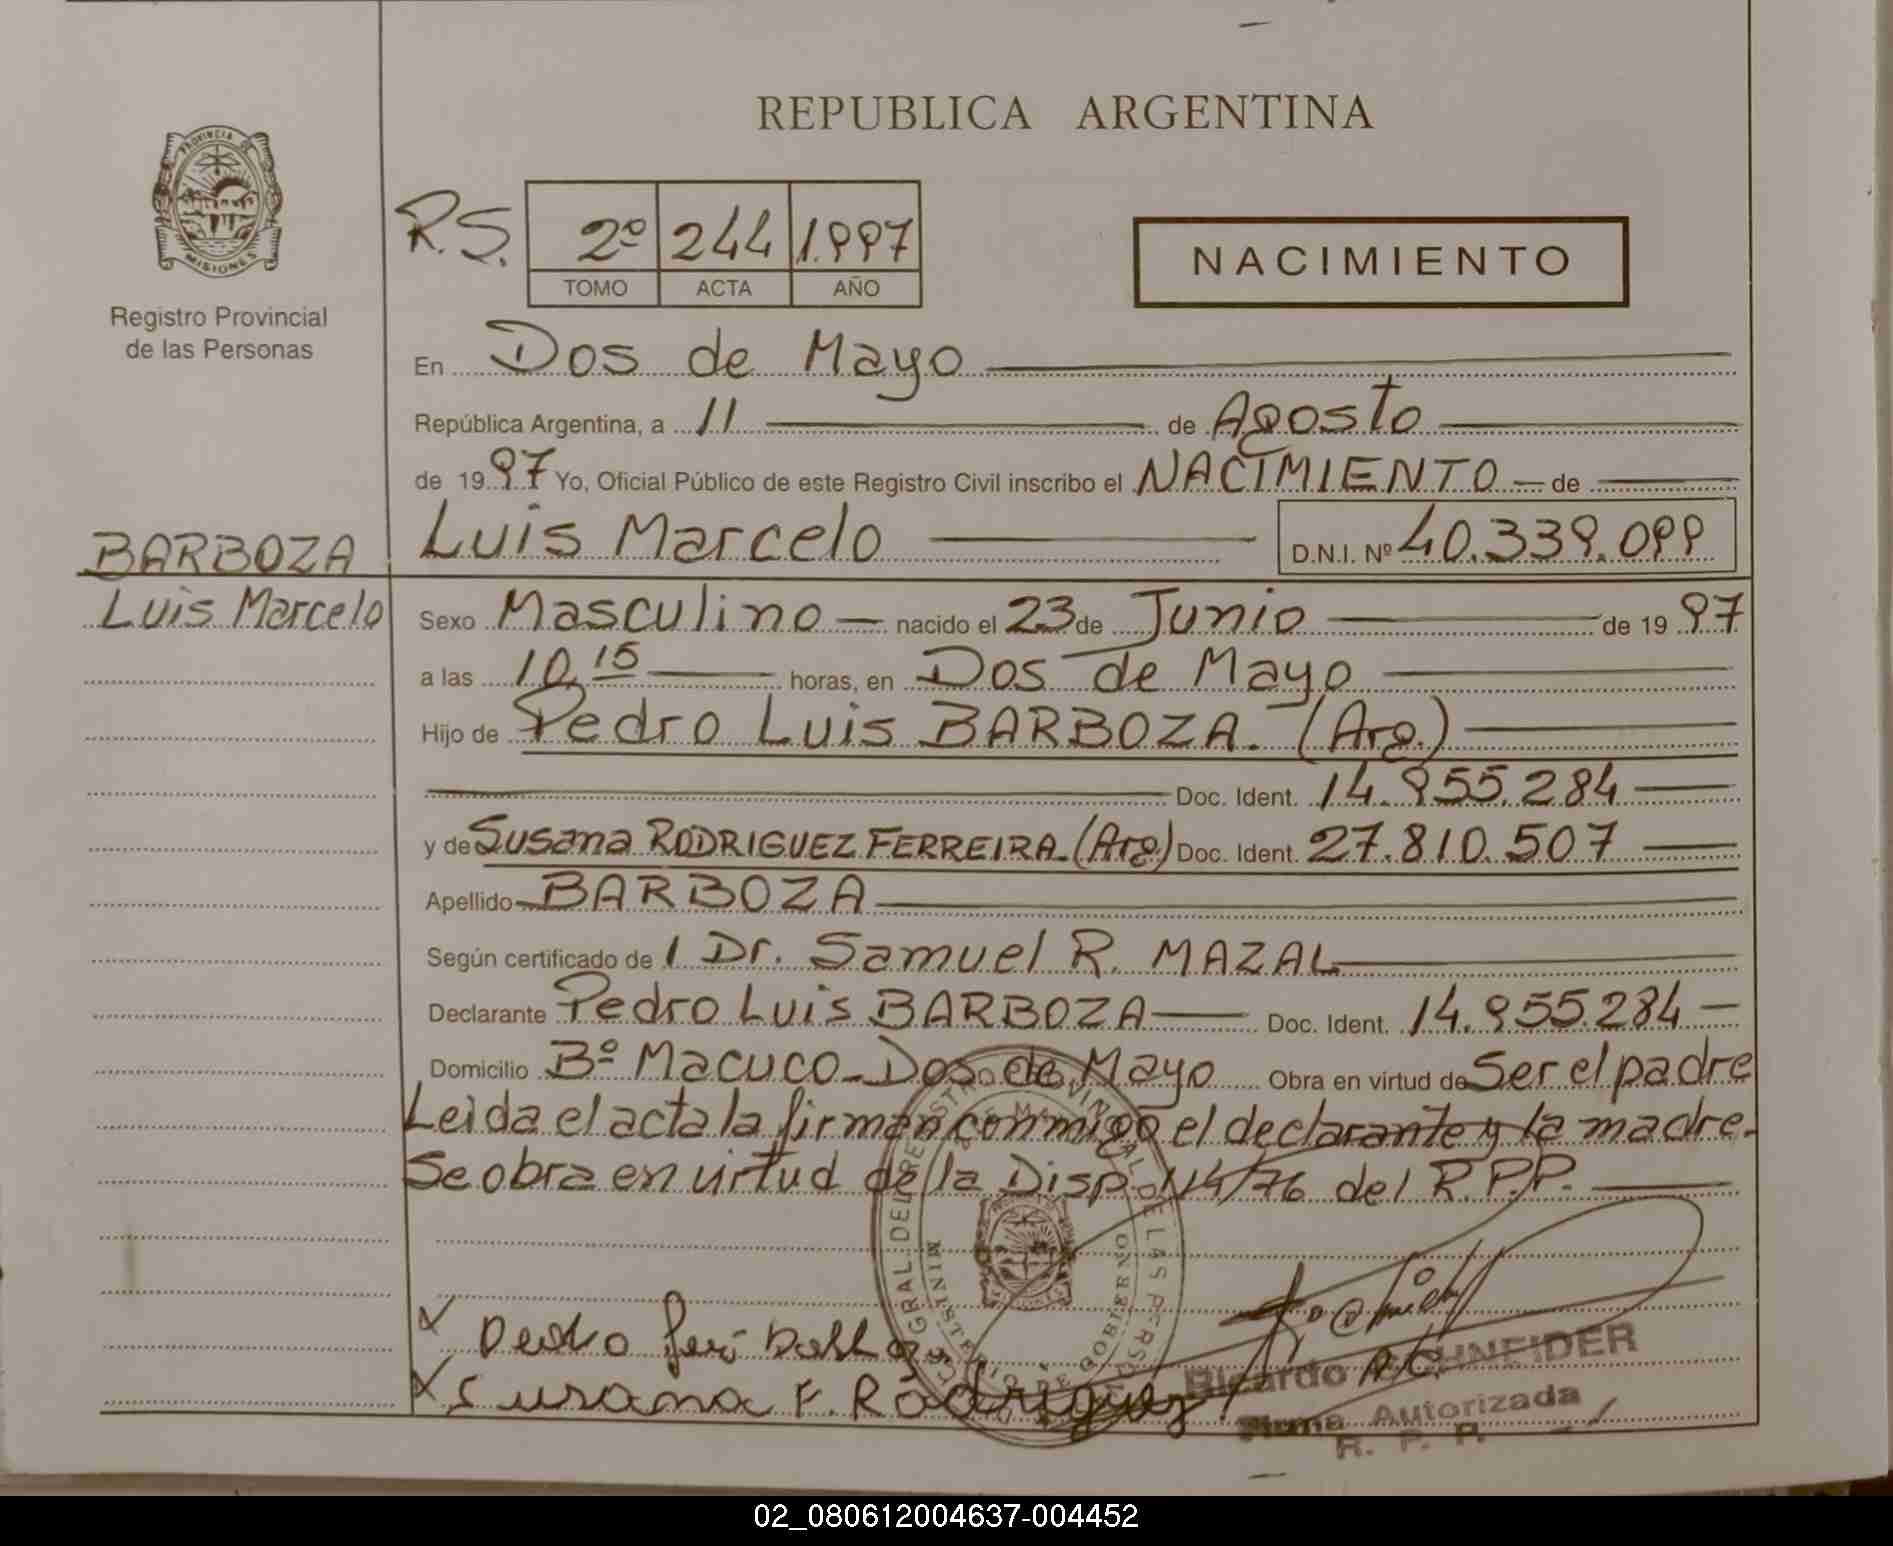 REPUBLICA ARGENTINA
PROVINCIA DE MISIONES
Registro Provincial
de las Personas
R.S. 2º 244 1.997
TOMO ACTA AÑO
NACIMIENTO
En Dos de Mayo
República Argentina, a 11 de Agosto
de 1997 Yo, Oficial Público de este Registro Civil inscribo el NACIMIENTO de
Luis Marcelo D.N.I. Nº 40.339.099
BARBOZA
Luis Marcelo
Sexo Masculino nacido el 23 de Junio de 1997
a las 10,15 horas, en Dos de Mayo
Hijo de Pedro Luis BARBOZA. (Arg.)
Doc. Ident. 14.955.284
y de Susana RODRIGUEZ FERREIRA. (Arg.) Doc. Ident. 27.810.507
Apellido BARBOZA
Según certificado de l Dr. Samuel R. MAZAL
Declarante Pedro Luis BARBOZA Doc. Ident. 14.955.284
Domicilio Bº Macuco - Dos de Mayo Obra en virtud de Ser el padre
Leida el acta la firman conmigo el declarante y la madre.
Se obra en virtud de la Disp. 114/76 del R.P.P.
X Pedro
X Susana F. Rodriguez
Ricardo A. SCHNEIDER
Firma Autorizada
R. P. P.
02_080612004637-004452